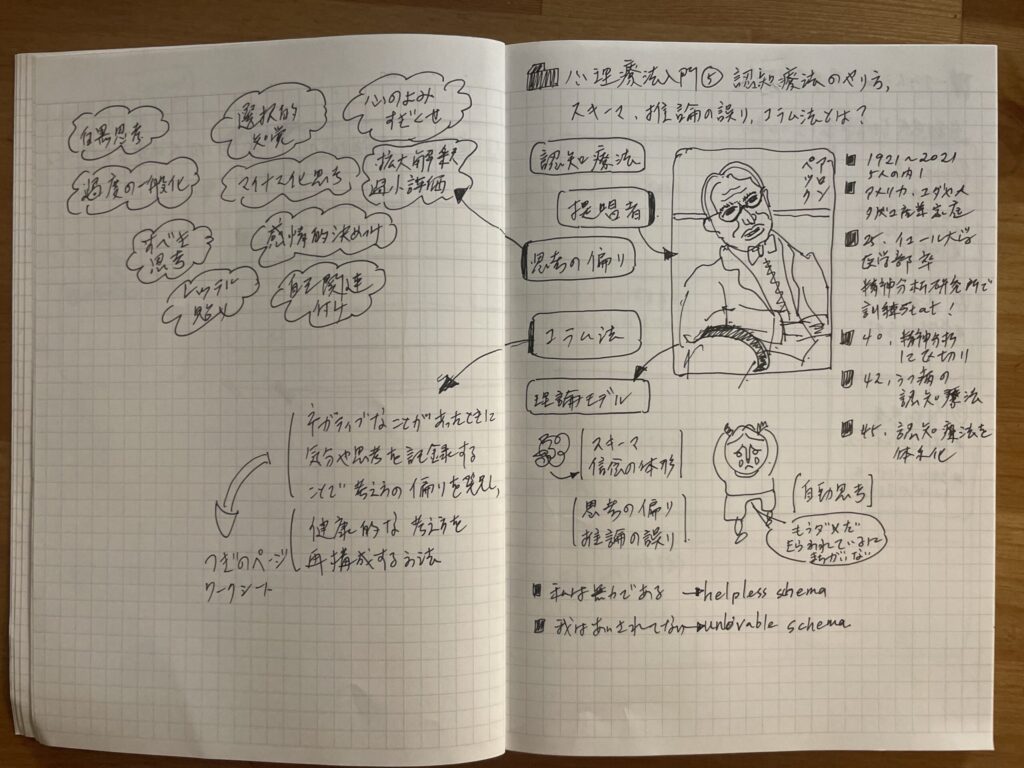 白黒思考
選択的
知覚
心のよみ
すぎぐせ
過度の一般化
マイナス化思考
拡大解釈
過小評価
すべき
思考
感情的決めつけ
レッテル
貼り
自己関連
付け
ネガティブなことがあったときに
気分や思考を記録する
ことで考え方の偏りを発見し、
健康的な考え方を
再構成する方法
つぎのページ
ワークシート
心理療法入門⑤ 認知療法のやり方、
スキーマ、推論の誤り、コラム法とは?
認知療法
提唱者
思考の偏り
コラム法
理論モデル
アーロン
ベック
1921~2021
5人の内1
アメリカ、ユダヤ人
タバコ産業家庭
25. イェール大学
医学部卒
精神分析研究所で
訓練Stat!
40. 精神分析
にひ切り
42. うつ病の
認知療法
45. 認知療法を
体系化
スキーマ
信念の体形
思考の偏り
推論の誤り
[自動思考]
もうダメだ
きらわれているに
まちがいない
私は無力である →helpless shema
我はあいされてない→unlovable schema